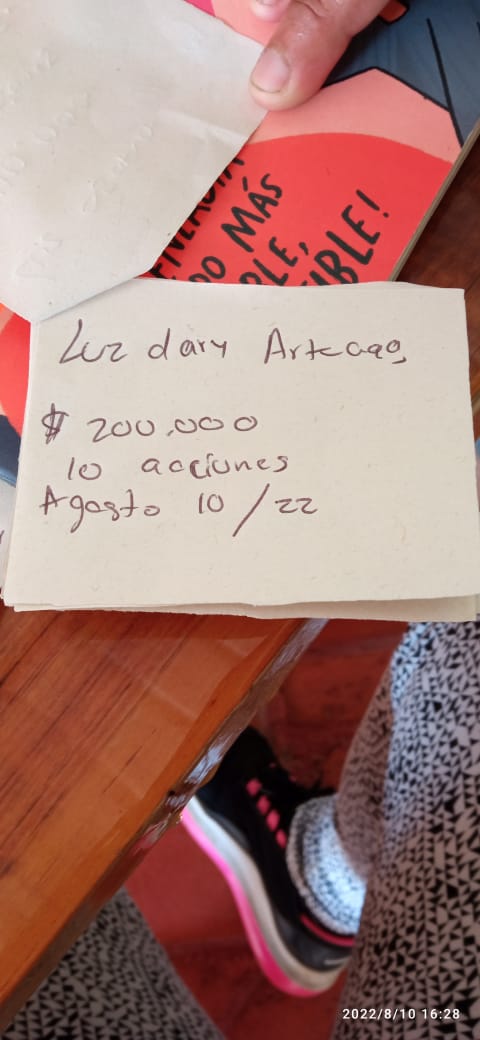 DO MÁS
IBLE!
Luz dary Arteaga
$ 200.000
10 acciones
Agosto 10/22
2022/8/10 16:28